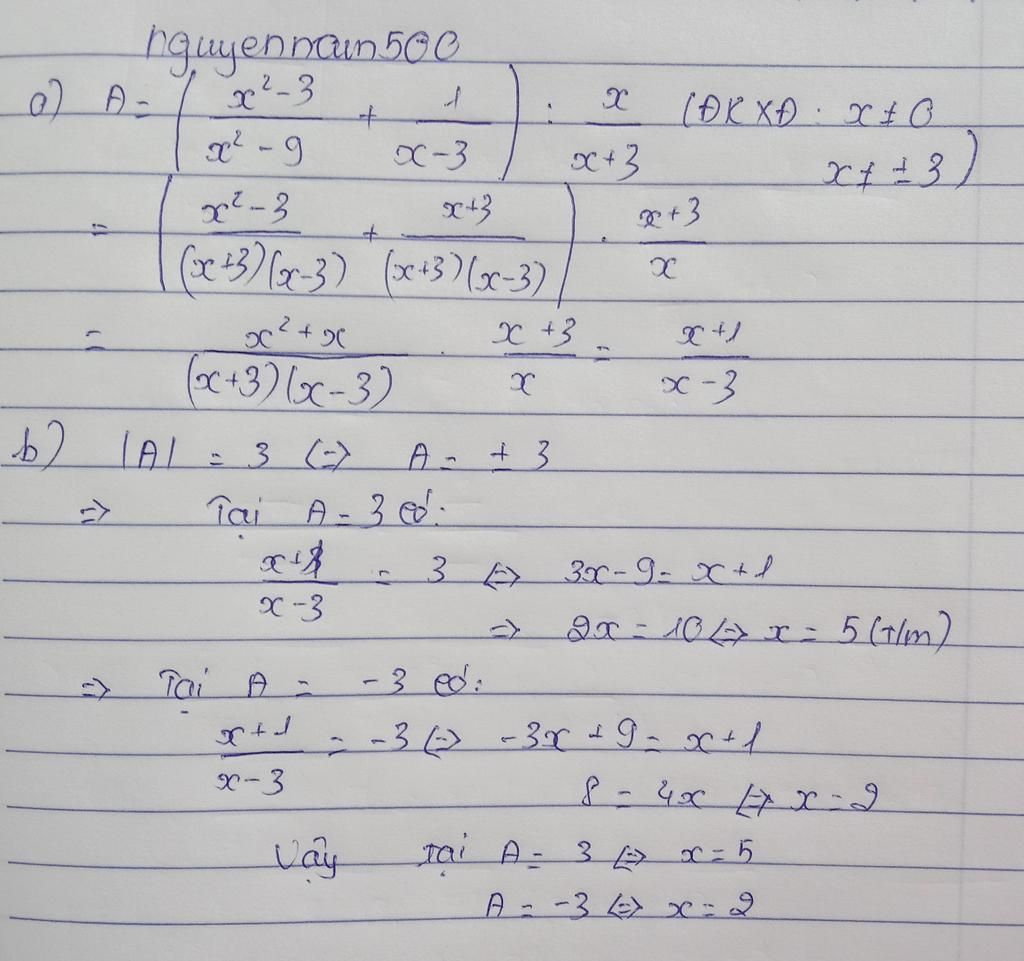 nguyennam500
a) A = ( (x² - 3)/(x² - 9) + 1/(x - 3) ) : x/(x + 3) (ĐKXĐ : x ≠ 0
x ≠ ± 3)
= ( (x² - 3)/((x+3)(x-3)) + (x+3)/((x+3)(x-3)) ) . (x+3)/x
= (x² + x)/((x+3)(x-3)) . (x+3)/x = (x+1)/(x-3)
b) |A| = 3 <=> A = ± 3
=> Tại A = 3 có:
(x+1)/(x-3) = 3 <=> 3x - 9 = x + 1
=> 2x = 10 <=> x = 5 (t/m)
=> Tại A = -3 có:
(x+1)/(x-3) = -3 <=> -3x + 9 = x + 1
8 = 4x <=> x = 2
Vậy tại A = 3 <=> x = 5
A = -3 <=> x = 2